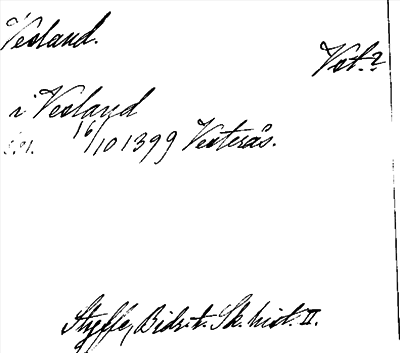 Vesland.
Vst.?
i Vesland
16/10 1399 Vesterås.
Styffe, Bidr. t. Sk. hist. II.